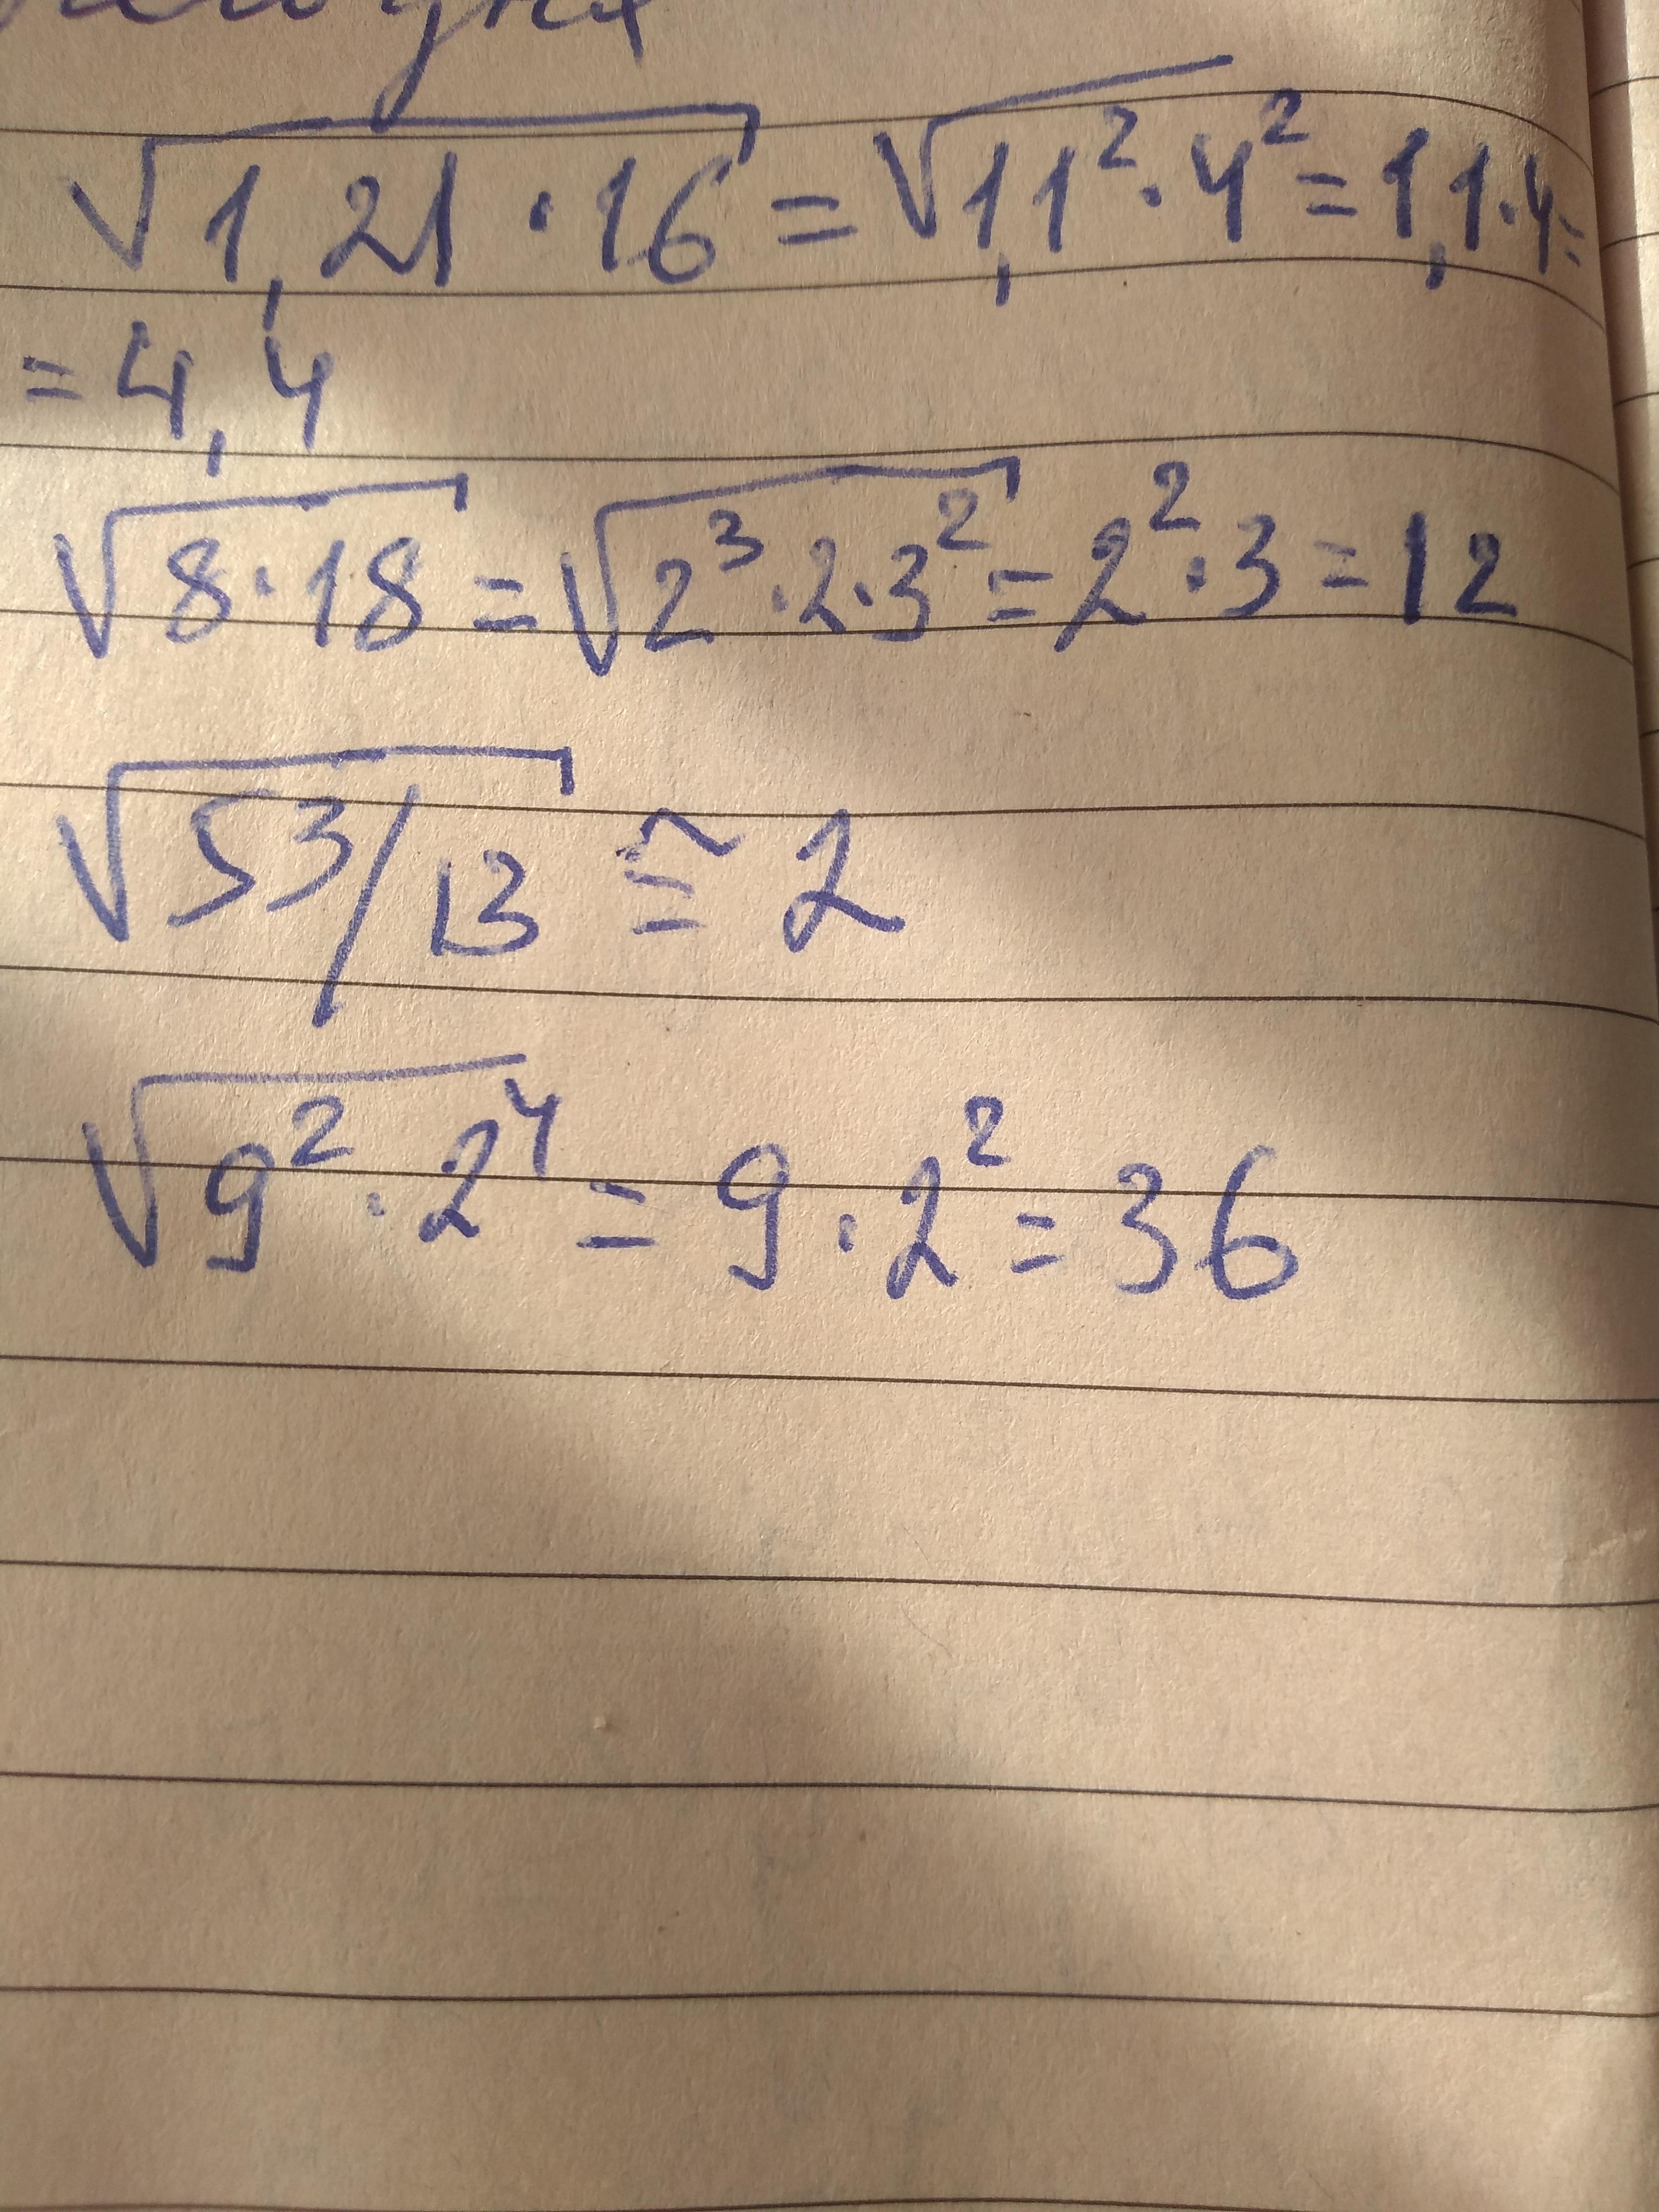 √1,21 · 16 = √1,1² · 4² = 1,1 · 4 =
= 4,4
√8 · 18 = √2³ · 2 · 3² = 2² · 3 = 12
√53/13 ≅ 2
√9² · 2⁴ = 9 · 2² = 36